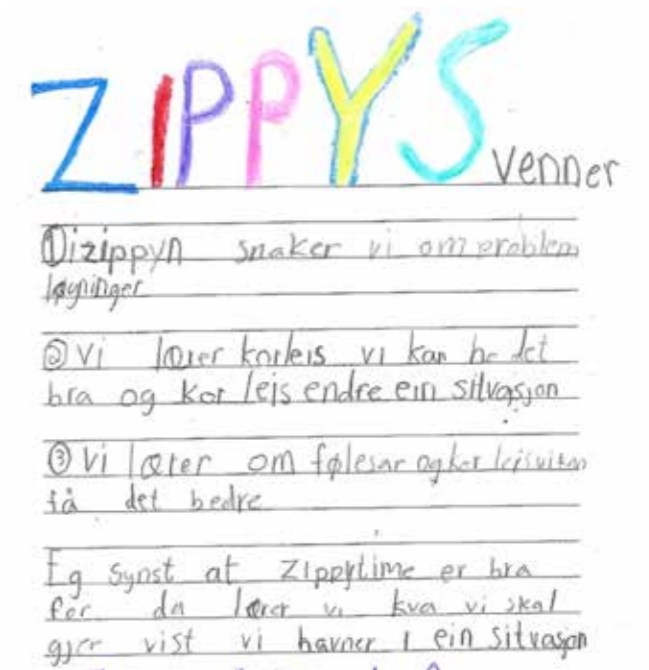 ZIPPYS venner
① i zippyn snaker vi om problem
løyninger
② Vi lærer korleis vi kan ha det
bra og kor leis endre ein sitvasjon
③ Vi lærer om følesar og kor leis vi kan
få det bedre
Eg synst at Zippytime er bra
for da lærer vi kva vi skal
gjer vist vi havner i ein sitvasjon